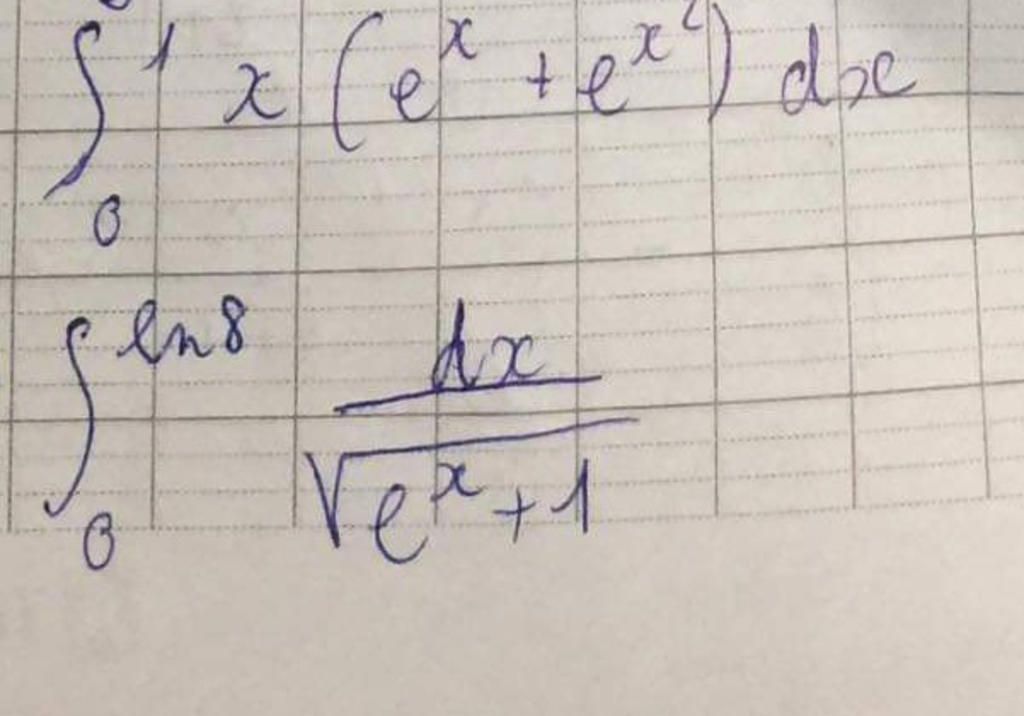 ∫₀¹ x (eˣ + e^{x²}) dx
∫₀^{ln 8} dx / √(eˣ + 1)